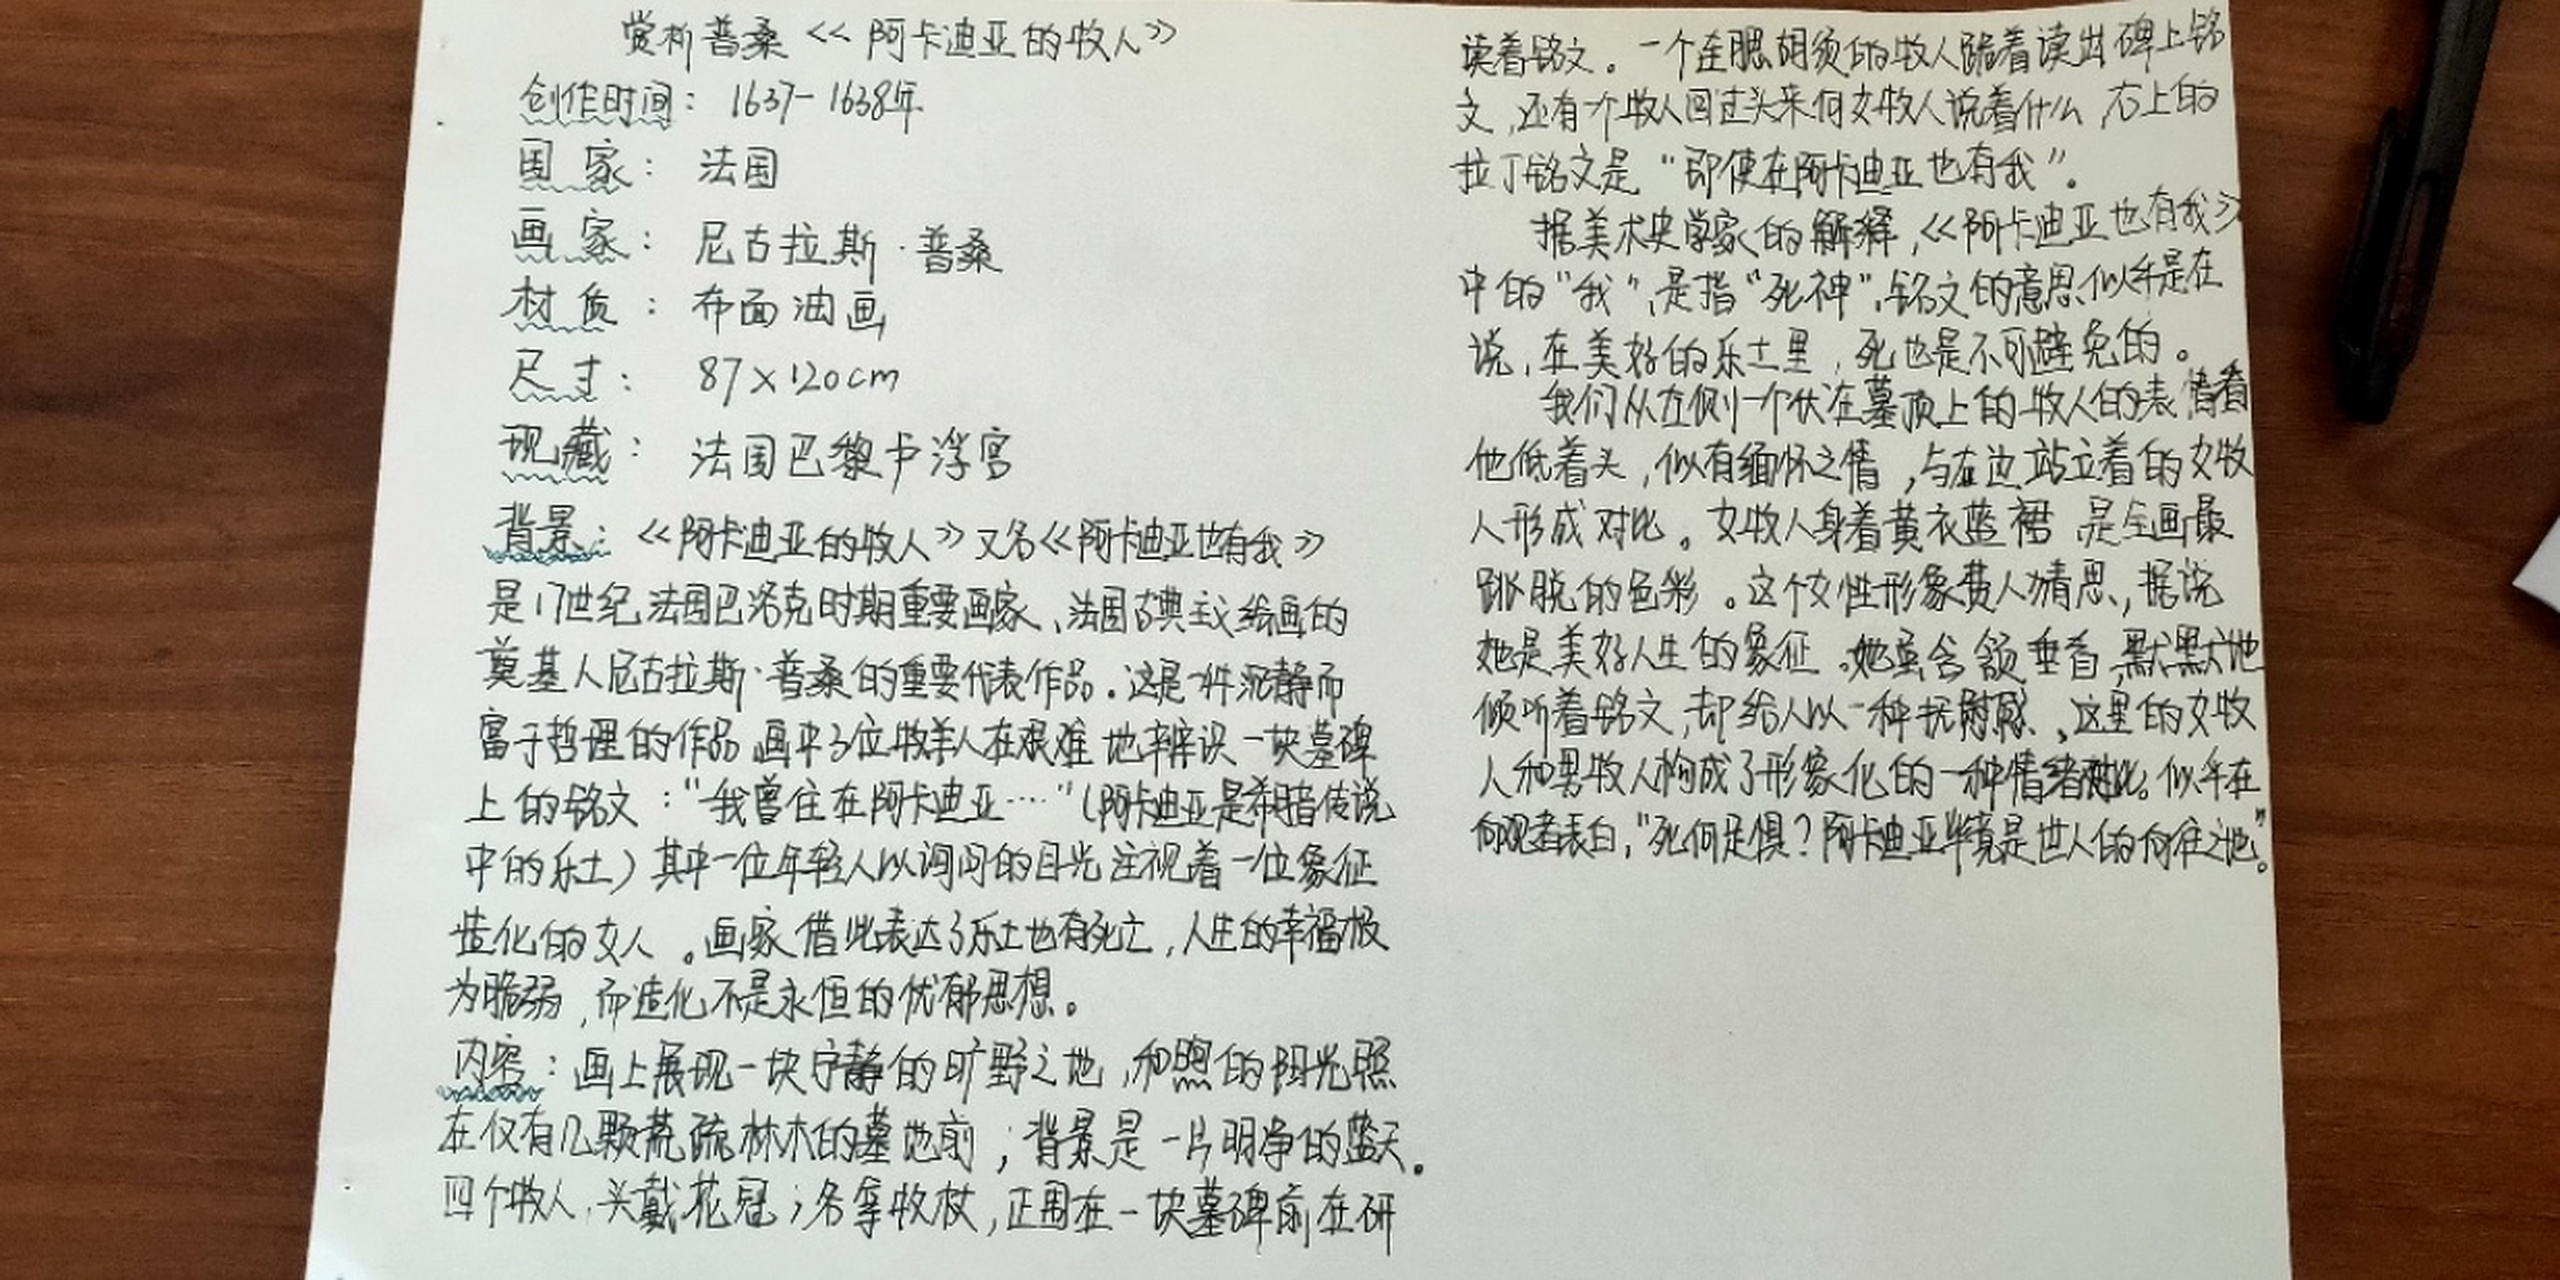 赏析普桑《阿卡迪亚的牧人》
创作时间：1637-1638年
国家：法国
画家：尼古拉斯·普桑
材质：布面油画
尺寸：87×120cm
现藏：法国巴黎卢浮宫
背景：《阿卡迪亚的牧人》又名《阿卡迪亚也有我》
是17世纪法国巴洛克时期重要画家、法国古典主义绘画的
奠基人尼古拉斯·普桑的重要代表作品。这是一件沉静而
富于哲理的作品 画中3位牧羊人在艰难地辨识一块墓碑
上的铭文："我曾住在阿卡迪亚……"(阿卡迪亚是希腊传说
中的乐土)其中一位年轻人以询问的目光注视着一位象征
造化的女人。画家借此表达了乐土也有死亡，人生的幸福极
为脆弱，而造化不是永恒的忧郁思想。
内容：画上展现一块宁静的旷野之地，和煦的阳光照
在仅有几颗荒疏林木的墓地前；背景是一片明净的蓝天。
四个牧人，头戴花冠；各拿牧杖，正围在一块墓碑前在研
读着铭文。一个连腮胡须的牧人跪着读出碑上铭
文，还有一个牧人回过头来向女牧人说着什么，石上的
拉丁铭文是"即使在阿卡迪亚也有我"。
据美术史学家的解释，《阿卡迪亚也有我》
中的"我"，是指"死神"，铭文的意思似乎是在
说，在美好的乐土里，死也是不可避免的。
我们从左侧一个伏在墓顶上的牧人的表情看
他低着头，似有缅怀之情，与右边站立着的女牧
人形成对比。女牧人身着黄衣蓝裙 是全画最
跳脱的色彩。这个女性形象费人猜思，据说
她是美好人生的象征。她虽含颔垂首，默默地
倾听着铭文，却给人以一种抚慰感、这里的女牧
人和男牧人构成了形象化的一种情绪对比。似乎在
向观者表白，"死何足惧？阿卡迪亚毕竟是世人的向往之地"。